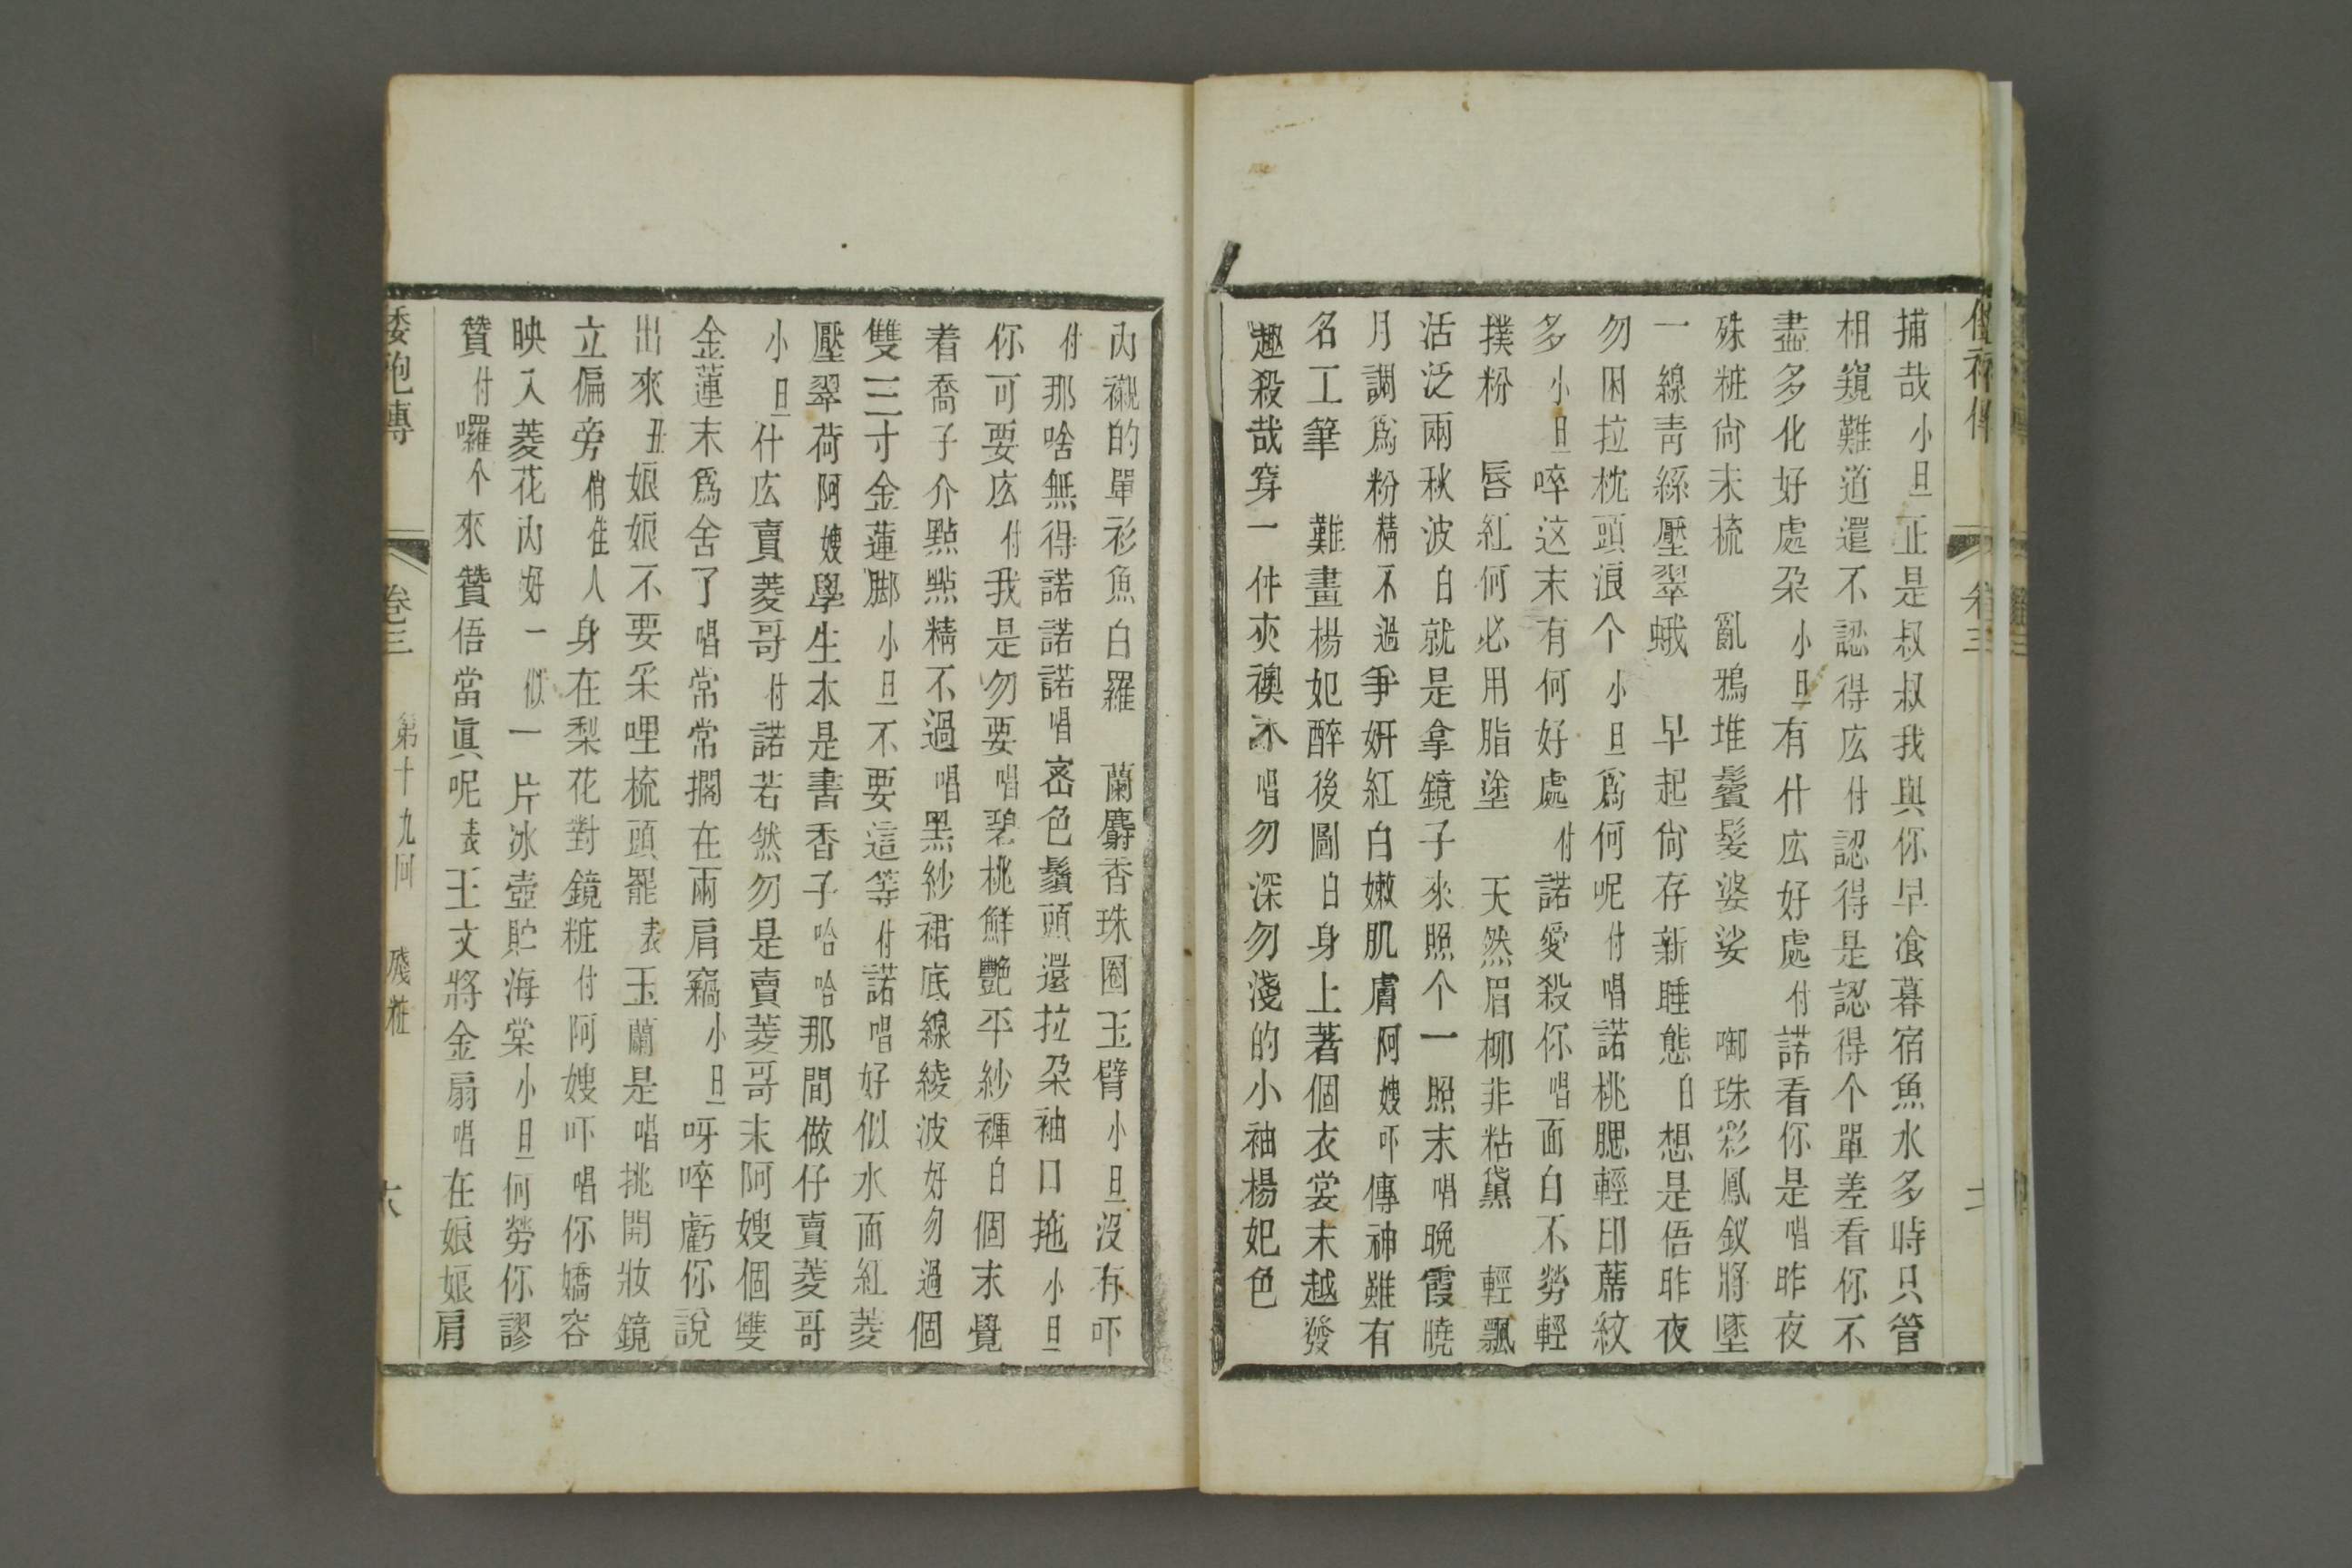 捕哉小旦正是叔叔我與你早飡暮宿魚水多時只管
相窺難道還不認得広付認得是認得个單差看你不
盡多化好處朶小旦有什広好處付諾看你是唱昨夜
殊粧尙未梳 亂鴉堆鬢髮婆娑 啣珠彩鳳釵將墜
一線靑絲壓翠蛾 早起尙存新睡態白想是俉昨夜
勿困拉枕頭浪个小旦爲何呢付唱諾桃腮輕印蓆紋
多小旦啐这末有何好處付諾愛殺你唱面白不勞輕
撲粉 唇紅何必用脂塗 天然眉柳非粘黛 輕飄
活泛兩秋波白就是拿鏡子來照个一照末唱晩霞曉
月調爲粉精不過爭姸紅白嫩肌膚阿嫂吓傳神雖有
名工筆 難畫楊妃醉後圖白身上著個衣裳末越發
趣殺哉穿一件夾襖沐唱勿深勿淺的小袖楊妃色
內襯的單衫魚白羅 蘭麝香珠圈玉臂小旦沒有吓
付那啥無得諾諾諾唱宻色鬚頭還拉朶袖口拖小旦
你可要広付我是勿要唱碧桃鮮艷平紗褲白個末覺
着喬子介點點精不過唱黑紗裙底線綾波好勿過個
雙三寸金蓮脚小旦不要這等付諾唱好似水面紅菱
壓翠荷阿嫂學生本是書香子哈哈那間做仔賣菱哥
小旦什広賣菱哥付諾若然勿是賣菱哥末阿嫂個雙
金蓮末爲舍了唱常常擱在兩肩窩小旦呀啐虧你說
出來丑娘娘不要采哩梳頭罷表玉蘭是唱挑開妝鏡
立偏旁俏隹人身在梨花對鏡粧付阿嫂吓唱你嬌容
映入菱花內好一似一片冰壺貯海棠小旦何勞你謬
贊付囉个來贊俉當眞呢表王文將金扇唱在娘娘肩
倭袍傳 卷三 第十九囘 殘粧 六